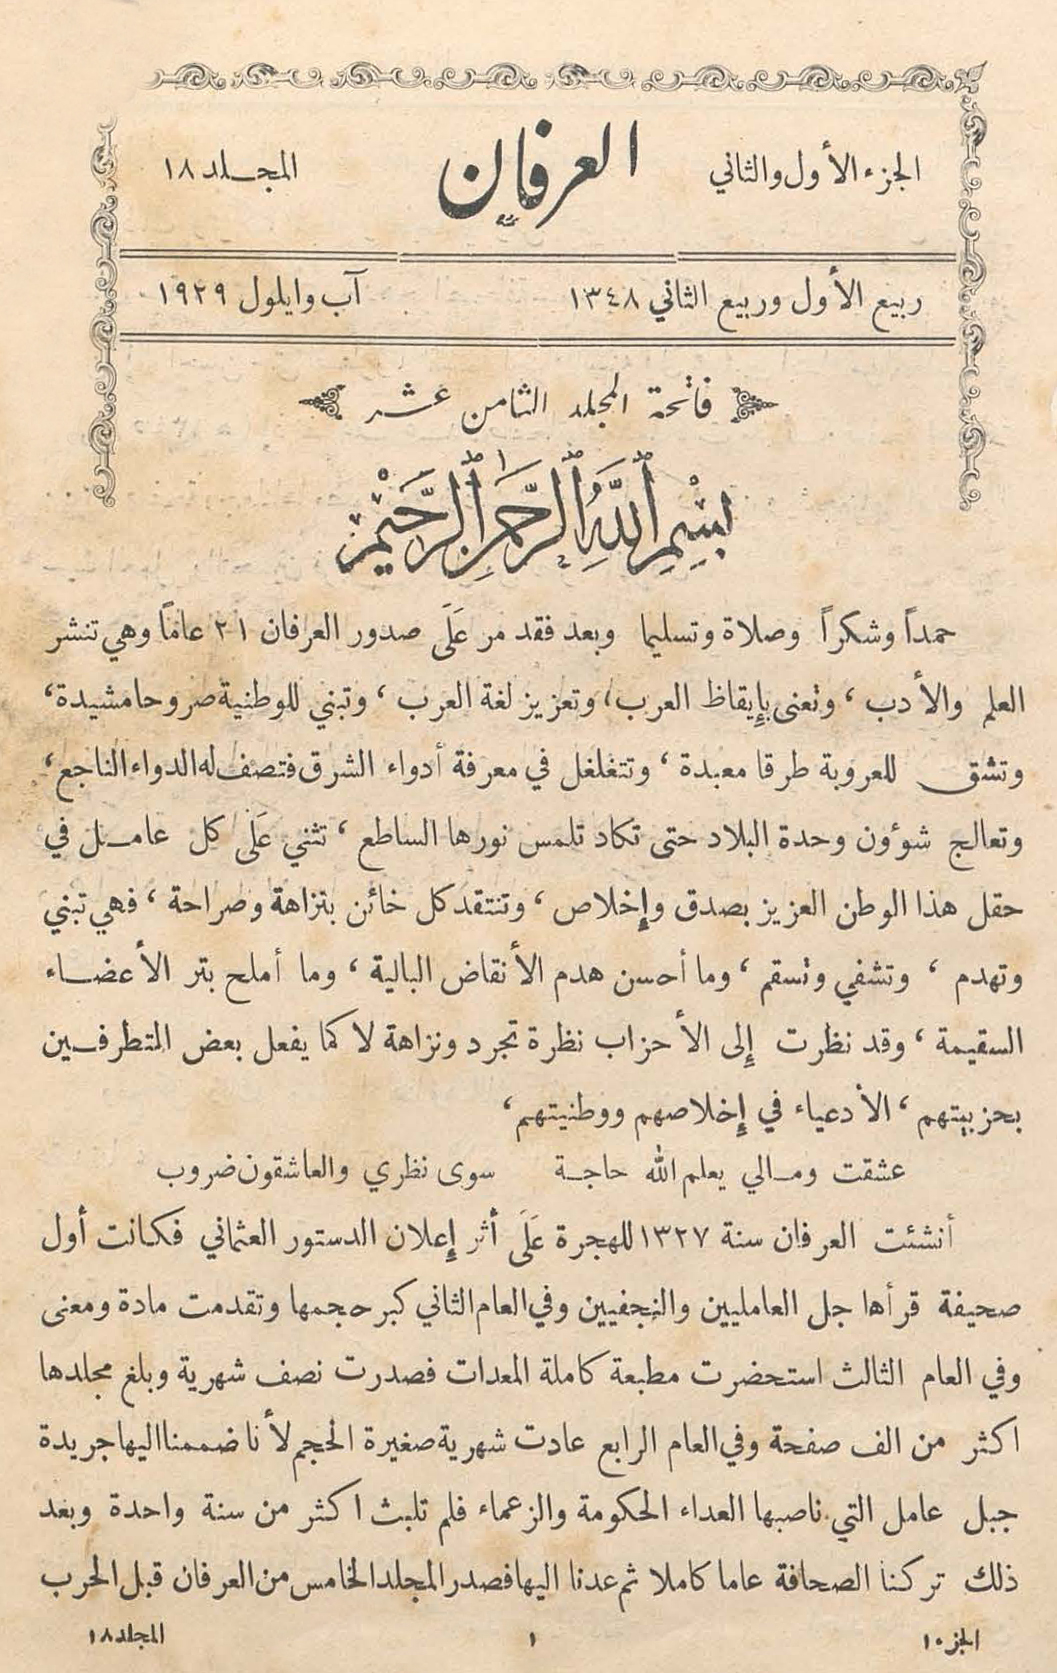 الجزء الأول والثاني
العرفان
المجلد ١٨
ربيع الأول وربيع الثاني ١٣٤٨
آب وايلول ١٩٢٩
فاتحة المجلد الثامن عشر
بِسْمِ اللَّهِ الرَّحْمَنِ الرَّحِيمِ
حمداً وشكراً وصلاة وتسليما وبعد فقد مر عَلَى صدور العرفان ٢١ عاماً وهي تنشر
العلم والأدب ، وتعنى بإيقاظ العرب، وتعزيز لغة العرب ، وتبني للوطنية صروحا مشيدة،
وتشق للعروبة طرقا معبدة ، وتتغلغل في معرفة أدواء الشرق فتصف له الدواء الناجع،
وتعالج شوؤن وحدة البلاد حتى تكاد تلمس نورها الساطع ، تثني عَلَى كل عامل في
حقل هذا الوطن العزيز بصدق وإخلاص ، وتنتقد كل خائن بنزاهة وصراحة ، فهي تبني
وتهدم ، وتشفي وتسقم ، وما أحسن هدم الأنقاض البالية ، وما أملح بتر الأعضاء
السقيمة ، وقد نظرت إلى الأحزاب نظرة تجرد ونزاهة لا كما يفعل بعض المتطرفين
بحزبيتهم ، الأدعياء في إخلاصهم ووطنيتهم،
عشقت ومالي يعلم الله حاجة سوى نظري والعاشقون ضروب
أنشئت العرفان سنة ١٣٢٧ للهجرة عَلَى أثر إعلان الدستور العثماني فكانت أول
صحيفة قرأها جل العامليين والنجفيين وفي العام الثاني كبر حجمها وتقدمت مادة ومعنى
وفي العام الثالث استحضرت مطبعة كاملة المعدات فصدرت نصف شهرية وبلغ مجلدها
اكثر من الف صفحة وفي العام الرابع عادت شهرية صغيرة الحجم لأنا ضممنا اليها جريدة
جبل عامل التي ناصبها العداء الحكومة والزعماء فلم تلبث اكثر من سنة واحدة وبعد
ذلك تركنا الصحافة عاما كاملا ثم عدنا اليها فصدر المجلد الخامس من العرفان قبل الحرب
الجزء ١
١
المجلد ١٨